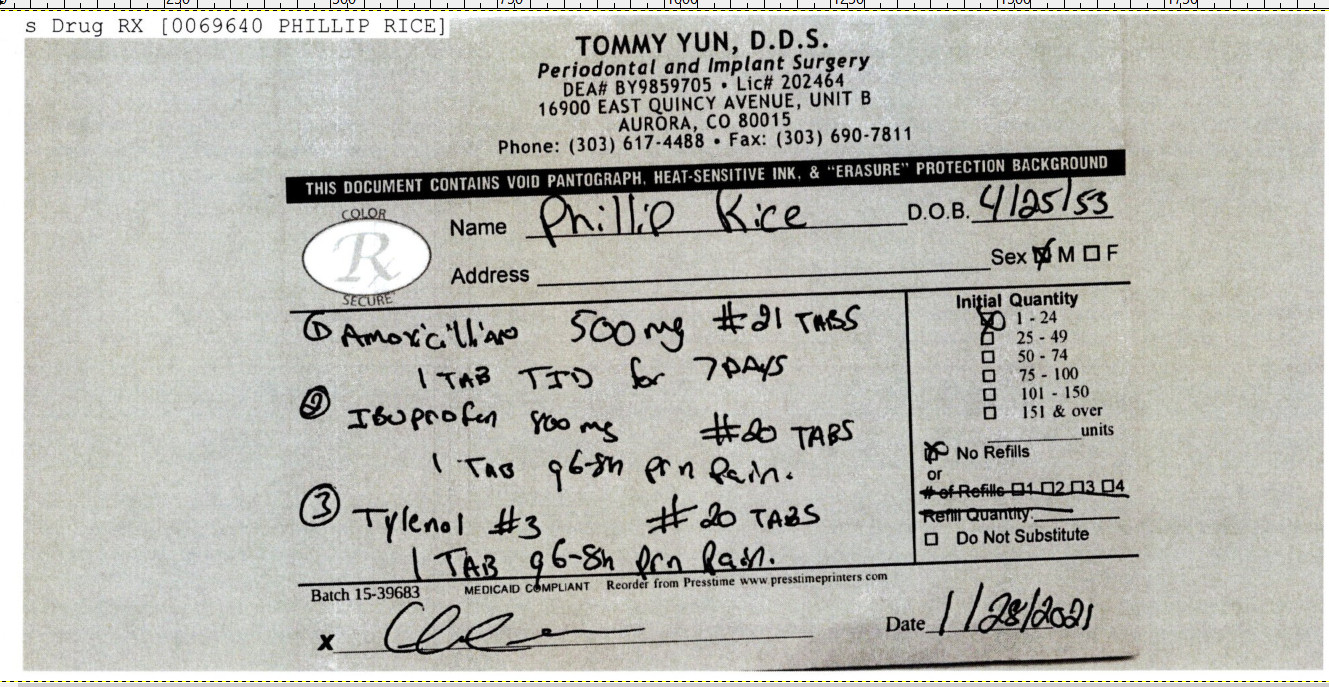 s Drug RX [0069640 PHILLIP RICE]
TOMMY YUN, D.D.S.
Periodontal and Implant Surgery
DEA# BY9859705 • Lic# 202464
16900 EAST QUINCY AVENUE, UNIT B
AURORA, CO 80015
Phone: (303) 617-4488 • Fax: (303) 690-7811
THIS DOCUMENT CONTAINS VOID PANTOGRAPH, HEAT-SENSITIVE INK, & "ERASURE" PROTECTION BACKGROUND
COLOR
Rx
SECURE
Name Phillip Rice D.O.B. 4/25/53
Address Sex ☒ M ☐ F
① Amoxicillian 500mg #21 TABS
1 TAB TID for 7 DAYS
② IBuprofen 800 mg #20 TABS
1 TAB q6-8h prn Pain.
③ Tylenol #3 #20 TABS
1 TAB q6-8h prn Pain.
Initial Quantity
☒ 1 - 24
☐ 25 - 49
☐ 50 - 74
☐ 75 - 100
☐ 101 - 150
☐ 151 & over
units
☒ No Refills
or
# of Refills ☐1 ☐2 ☐3 ☐4
Refill Quantity:
☐ Do Not Substitute
Batch 15-39683 MEDICAID COMPLIANT Reorder from Presstime www.presstimeprinters.com
x Date 1/28/2021